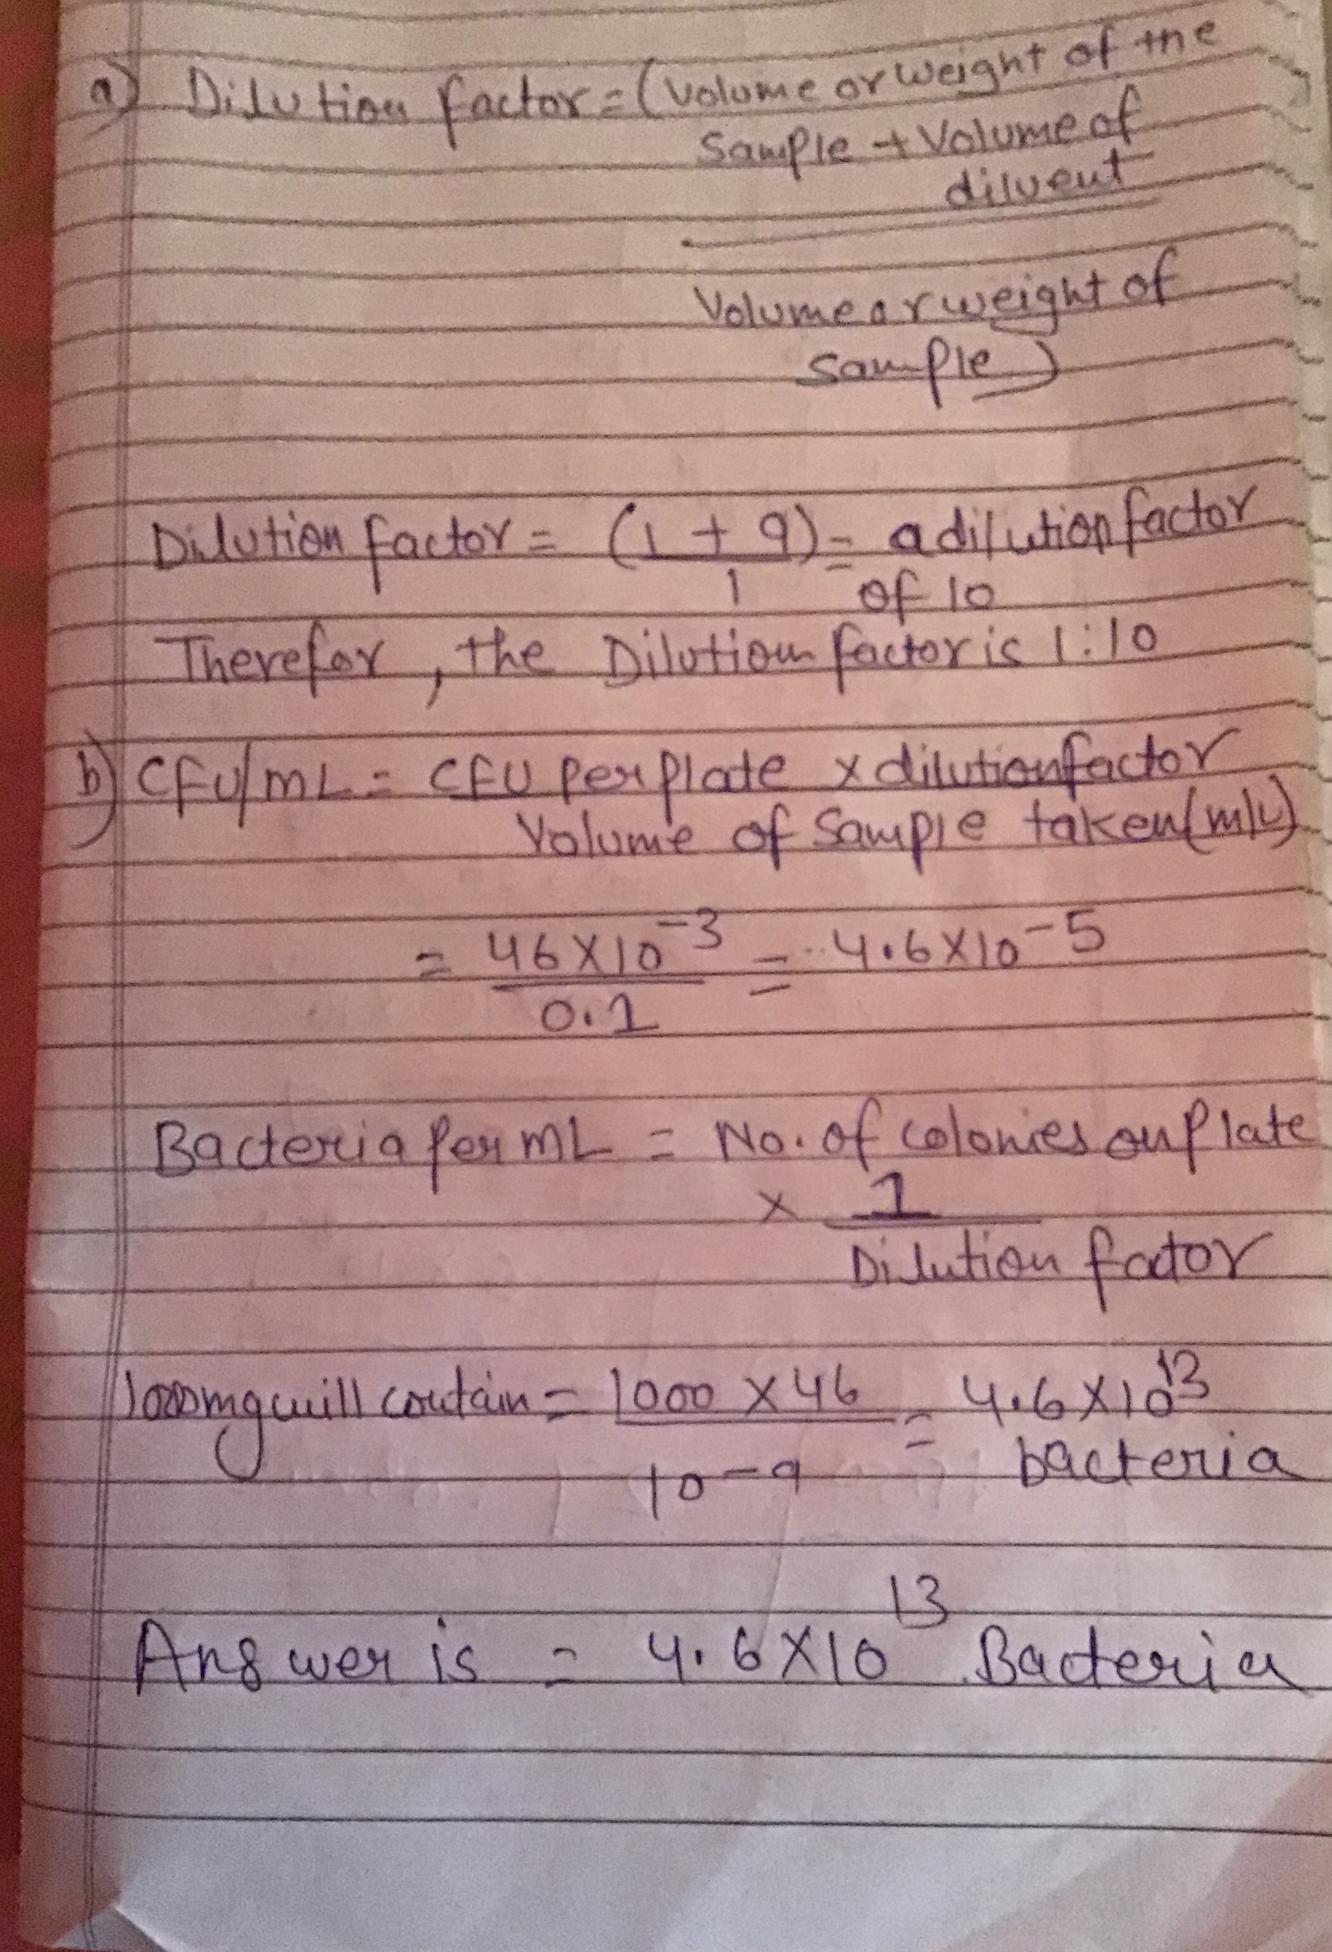 a) Dilution factor = (Volume or weight of the
Sample + Volume of
diluent
Volume or weight of
Sample)
Dilution factor = (1 + 9) = a dilution factor
1 of 10
Therefor, the Dilution factor is 1:10
b) CFU/mL = CFU per plate x dilution factor
Volume of Sample taken (mL)
= 46 X 10⁻³ = 4.6 X 10⁻⁵
0.1
Bacteria per mL = No. of colonies on plate
x 1
Dilution factor
1000mg will contain = 1000 X 46 = 4.6 X 10¹³
10⁻⁹ bacteria
Answer is = 4.6 X 10¹³ Bacteria